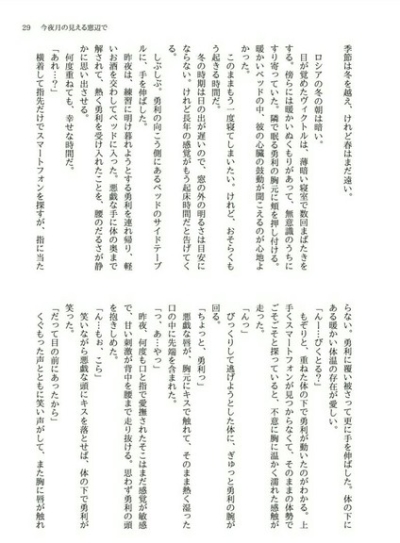 29　今夜月の見える窓辺で
季節は冬を越え、けれど春はまだ遠い。
ロシアの冬の朝は暗い。
目が覚めたヴィクトルは、薄暗い寝室で数回まばたきを
する。傍らには暖かいぬくもりがあって、無意識のうちに
すり寄っていた。隣で眠る勇利の胸元に頬を押し付ける。
暖かいベッドの中、彼の心臓の鼓動が聞こえるのが心地よ
かった。
このままもう一度寝てしまいたい。けれど、おそらくも
う起きる時間だ。
冬の時期は日の出が遅いので、窓の外の明るさは目安に
ならない。けれど長年の感覚がもう起床時間だと告げてく
る。
しぶしぶ、勇利の向こう側にあるベッドのサイドテーブ
ルに、手を伸ばした。
昨夜は、練習に明け暮れようとする勇利を連れ帰り、軽
いお酒を交わしてベッドに入った。悪戯な手に体の奥まで
暴かれて、熱く勇利を受け入れたことを、腰のだるさが静
かに思い出させる。
何度重ねても、幸せな時間だ。
「あれ…？」
横着して指先だけでスマートフォンを探すが、指に当た
らない。勇利に覆い被さって更に手を伸ばした。体の下に
ある暖かい体温の存在が愛しい。
「んー…びくとる？」
もぞりと、重ねた体の下で勇利が動いたのがわかる。上
手くスマートフォンが見つからなくて、そのままの体勢で
ごそごそと探っていると、不意に胸に温かく濡れた感触が
走った。
「んっ」
びっくりして逃げようとした体に、ぎゅっと勇利の腕が
回る。
「ちょっと、勇利っ」
悪戯な唇が、胸元にキスで触れて、そのまま熱く湿った
口の中に先端を含まれた。
「っ、あ…やっ」
昨夜、何度も口と指で愛撫されたそこはまだ感覚が敏感
で、甘い刺激が背中を腰まで走り抜ける。思わず勇利の頭
を抱きしめた。
「ん…もぉ、こら」
笑いながら悪戯な頭にキスを落とせば、体の下で勇利が
笑った。
「だって目の前にあったから」
くぐもった声とともに笑い声がして、また胸に唇が触れ